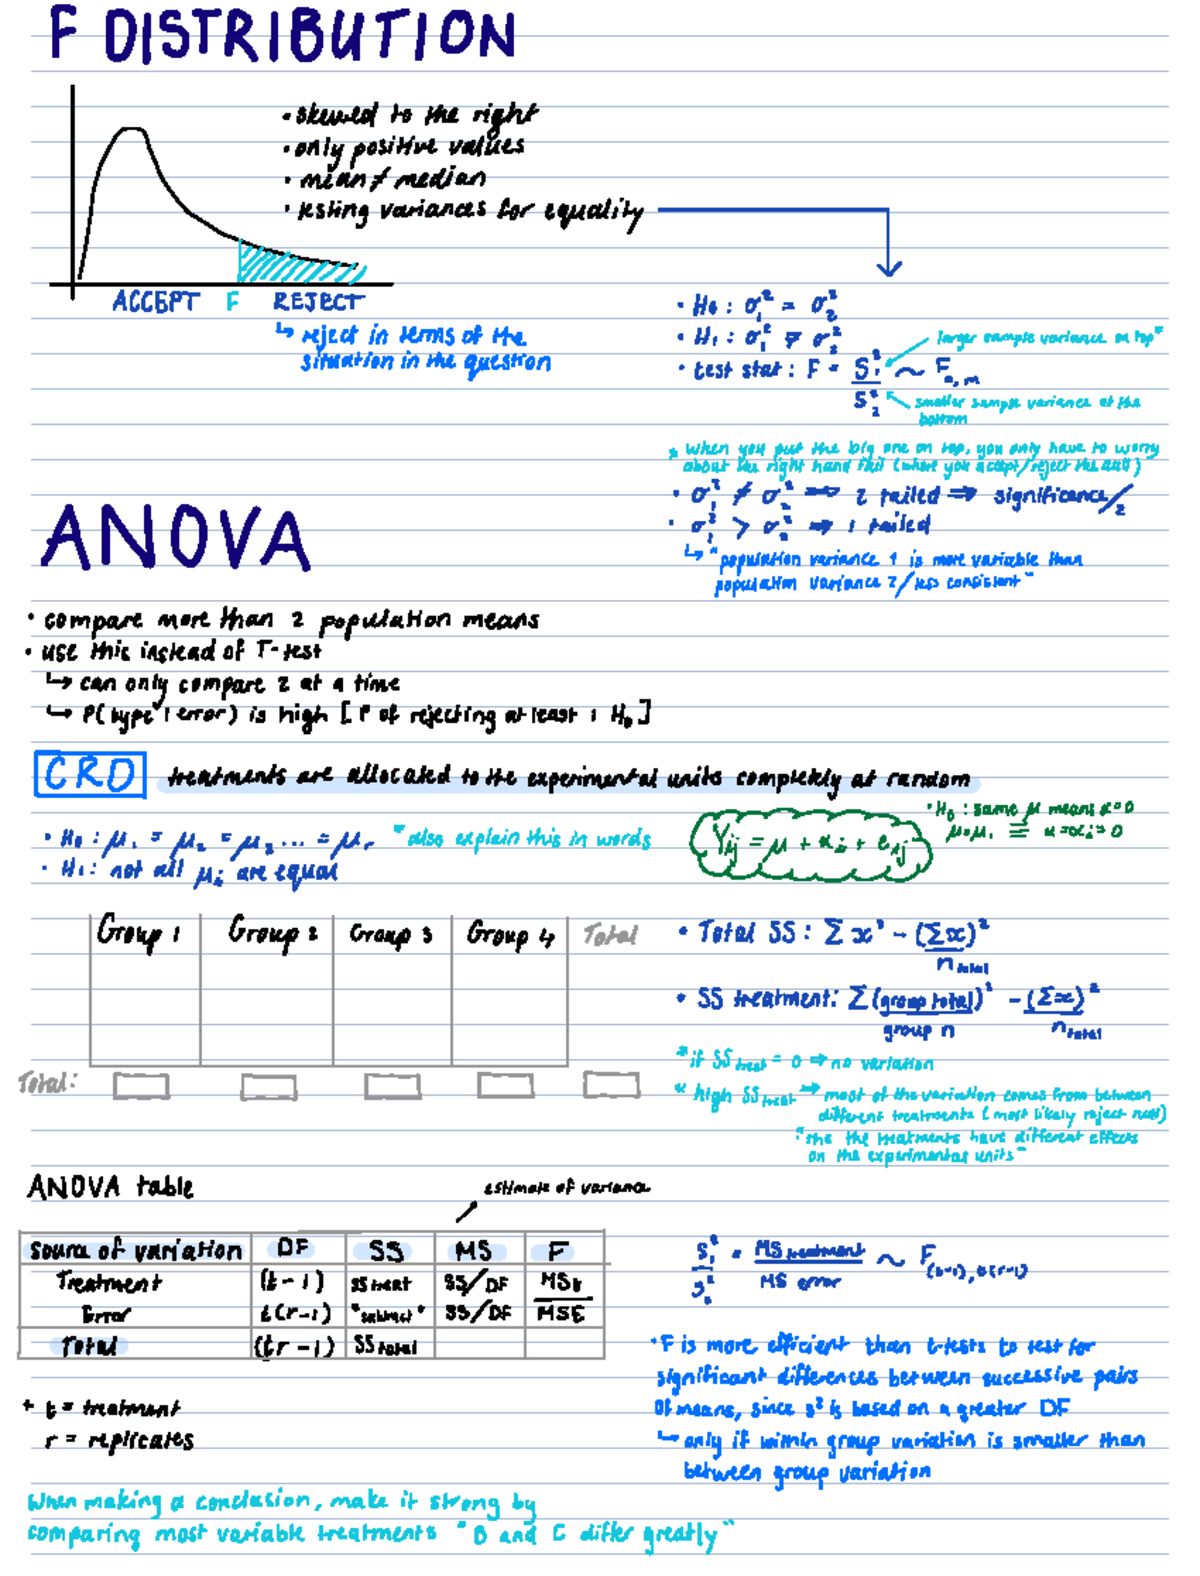 F DISTRIBUTION
• skewed to the right
• only positive values
• mean ≠ median
• testing variances for equality
ACCEPT F REJECT
↳ reject in terms of the
situation in the question
• H₀ : σ₁² = σ₂²
• H₁ : σ₁² ≠ σ₂²
larger sample variance on top*
• test stat : F = S₁² / S₂² ~ Fₙ,ₘ
smaller sample variance at the
bottom
* when you put the big one on top, you only have to worry
about the right hand tail (where you accept/reject the null)
• σ₁² ≠ σ₂² ⇒ 2 tailed ⇒ significance/2
• σ₁² > σ₂² ⇒ 1 tailed
↳ "population variance 1 is more variable than
population variance 2/less consistent"
ANOVA
• compare more than 2 population means
• use this instead of T-test
↳ can only compare 2 at a time
↳ P(type 1 error) is high [P of rejecting at least 1 H₀]
CRD treatments are allocated to the experimental units completely at random
• H₀ : μ₁ = μ₂ = μ₃ ... = μᵣ *also explain this in words
• H₁ : not all μᵢ are equal
Yᵢⱼ = μ + αᵢ + eᵢⱼ
• H₀ : same μ means α=0
μ=μ₁ ≡ α=αᵢ=0
Group 1 Group 2 Group 3 Group 4 Total
Total:
• Total SS : Σx² - (Σx)² / n total
• SS treatment: Σ(group total)² / group n - (Σx)² / n total
*if SS treat = 0 ⇒ no variation
* high SS treat ⇒ most of the variation comes from between
different treatments (most likely reject null)
"the the treatments have different effects
on the experimental units"
ANOVA table
estimate of variance
source of variation DF SS MS F
Treatment (t-1) SS treat SS/DF MSt
Error t(r-1) "subtract" SS/DF MSE
Total (tr-1) SS total
S₁² / S₂² = MS treatment / MS error ~ F (t-1), t(r-1)
+ t = treatment
r = replicates
*F is more efficient than t-tests to test for
significant differences between successive pairs
of means, since s² is based on a greater DF
↳ only if within group variation is smaller than
between group variation
When making a conclusion, make it strong by
comparing most variable treatments "B and C differ greatly"